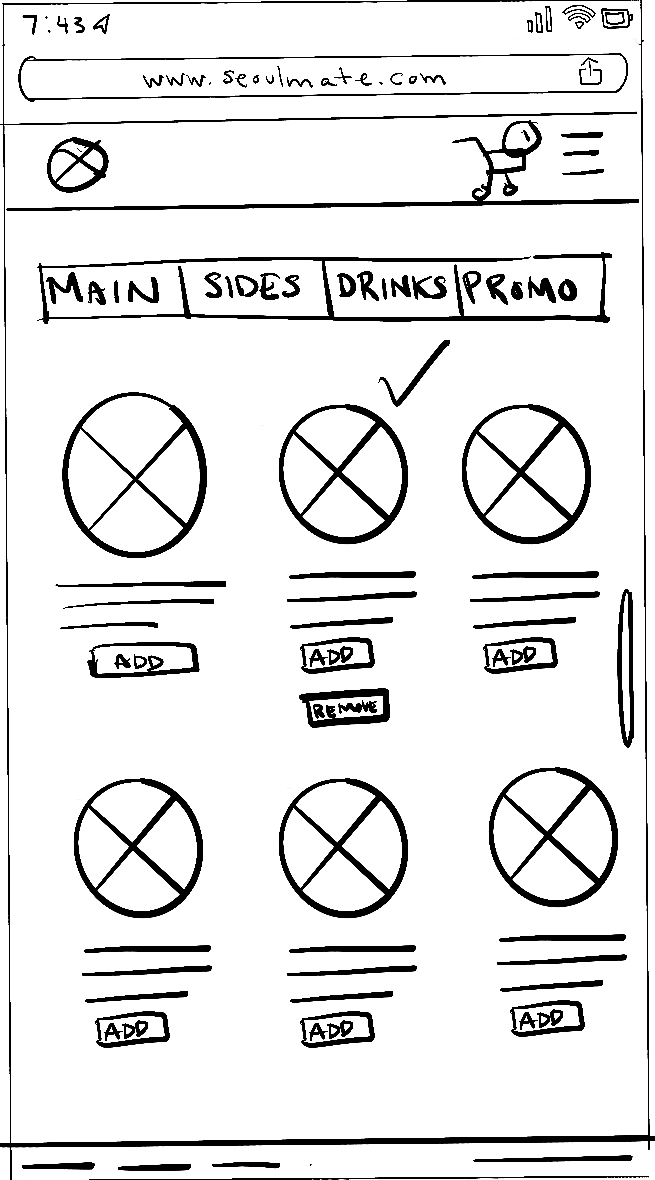 7:43
www.seoulmate.com
1
MAIN SIDES DRINKS PROMO
ADD ADD ADD
REMOVE
ADD ADD ADD